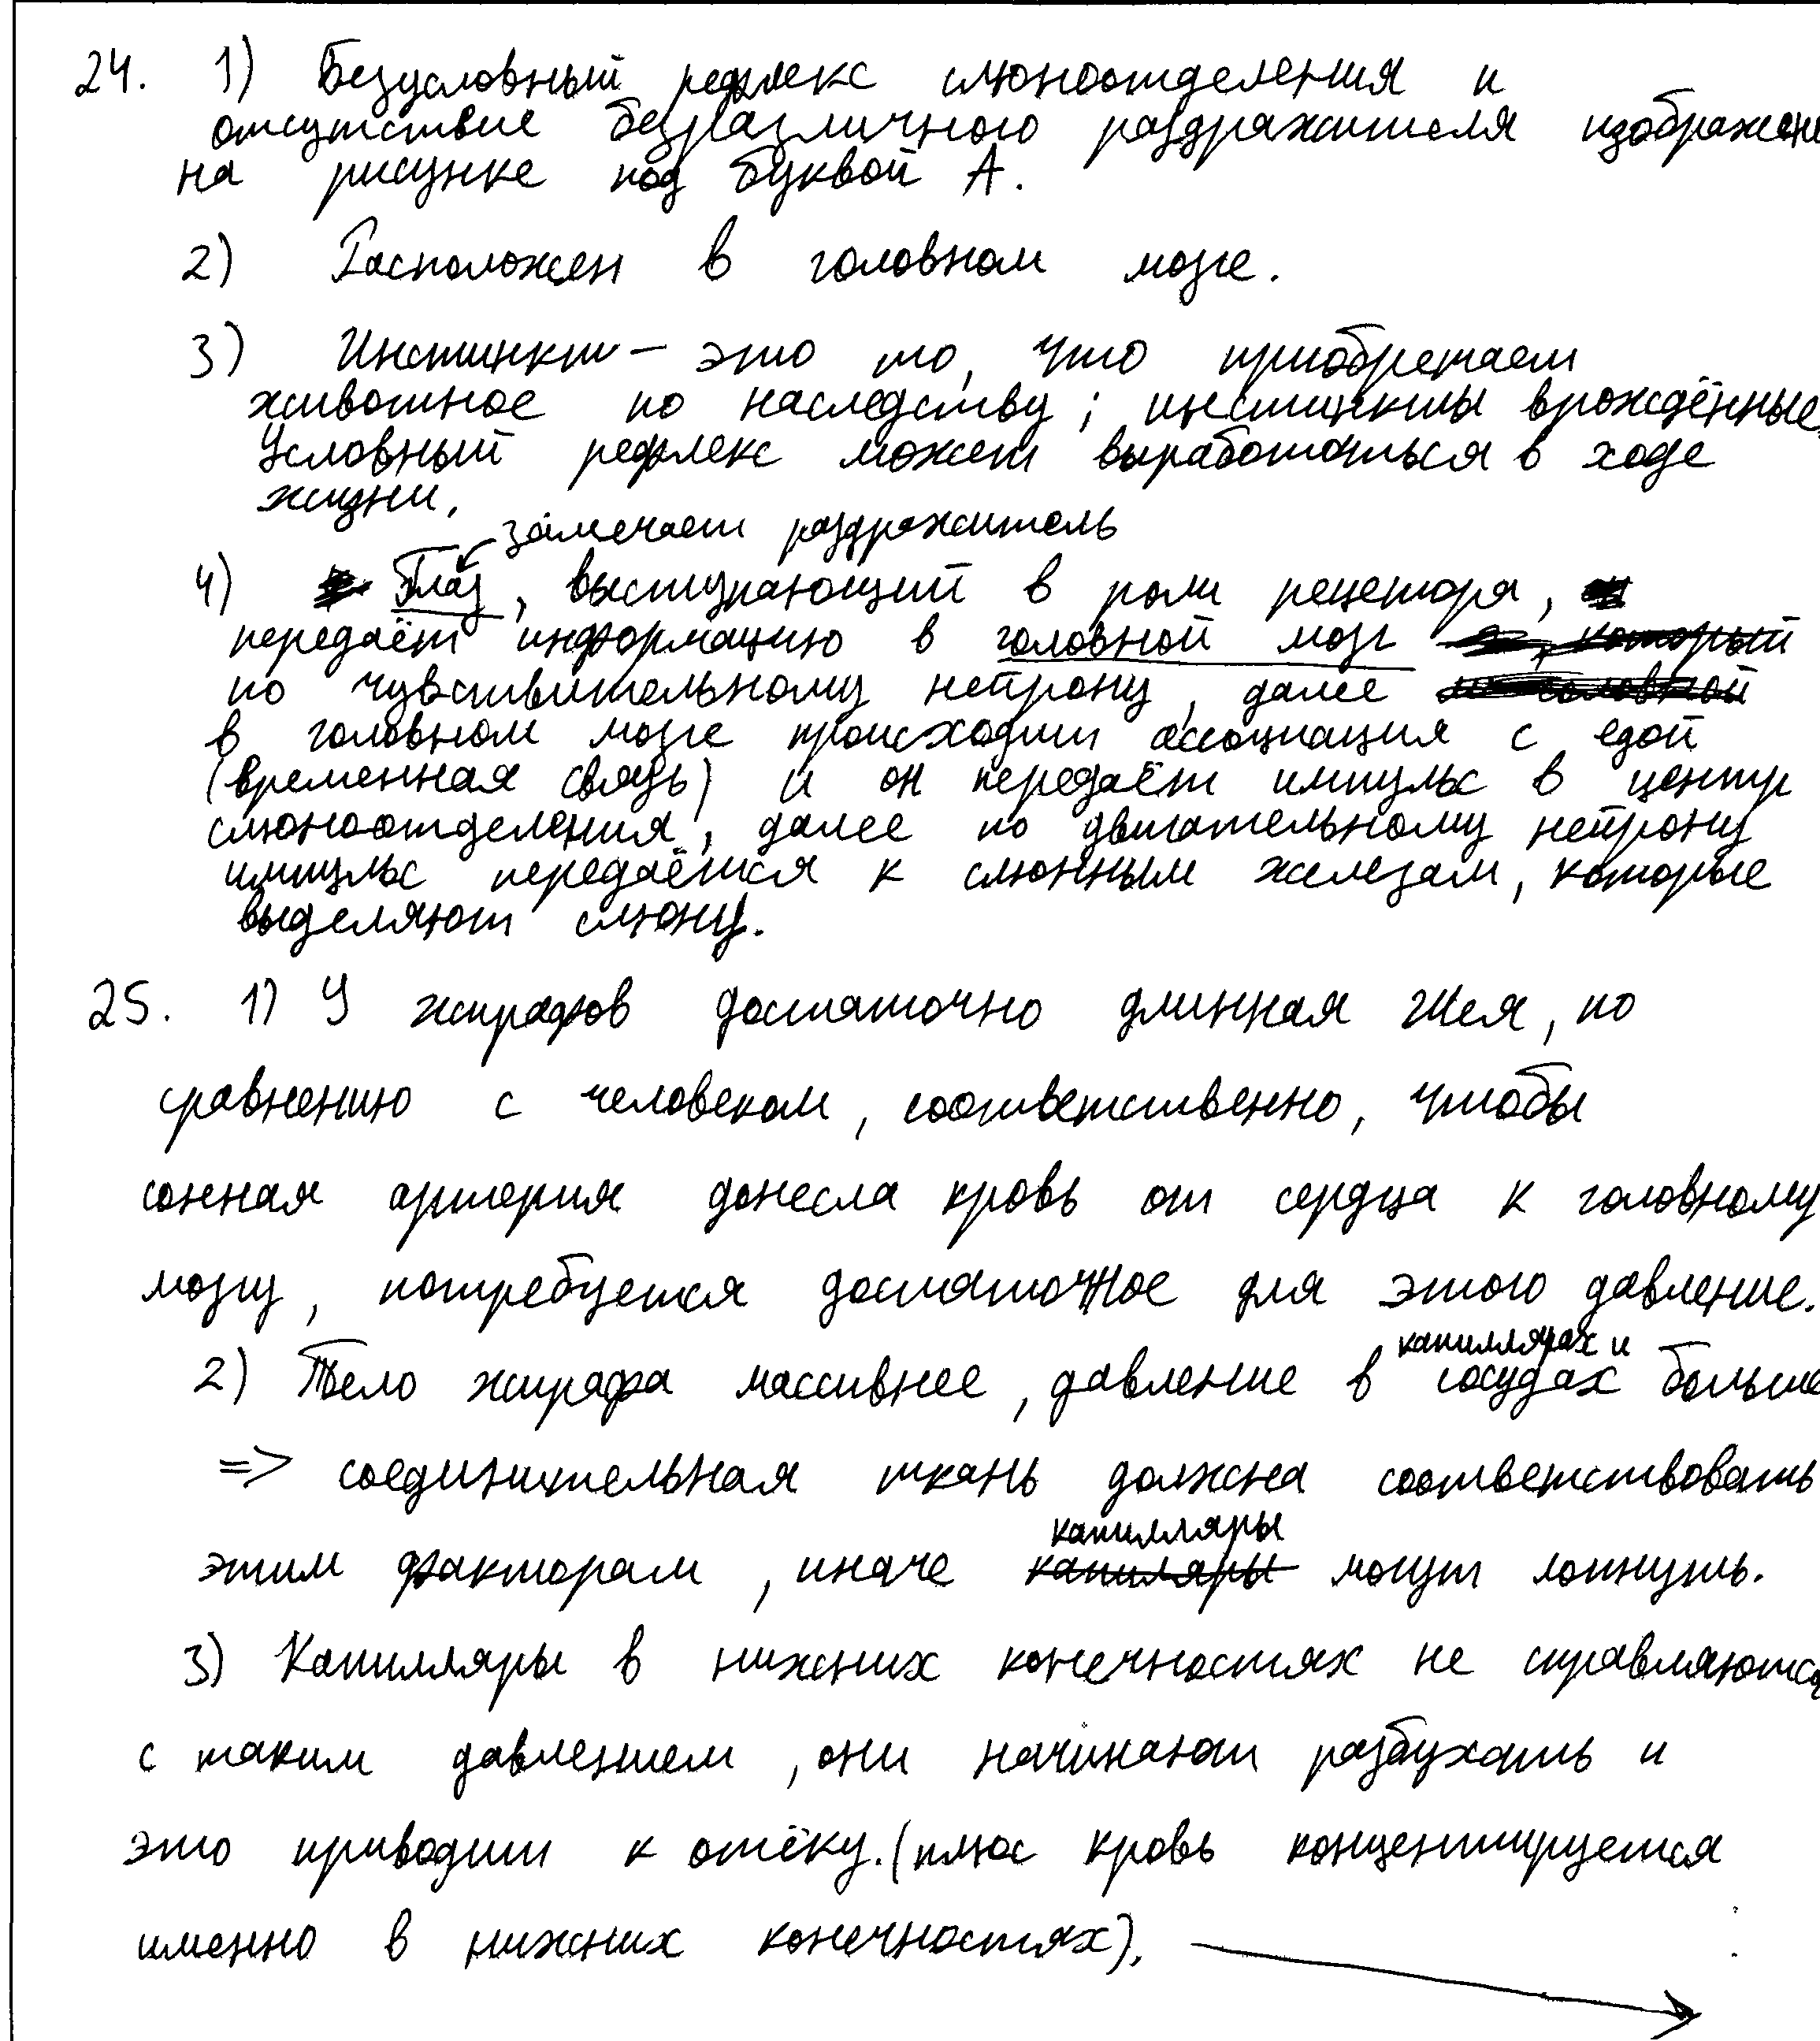 24. 1) Безусловный рефлекс слюноотделения и
отсутствие безразличного раздражителя изображено
на рисунке под буквой А.
2) Расположен в головном мозге.
3) Инстинкт – это то, что приобретает
животное по наследству; инстинкты врождённые.
Условный рефлекс может выработаться в ходе
жизни.
замечает раздражитель
4) Глаз, выступающий в роли рецептора,
передаёт информацию в головной мозг , который
по чувствительному нейрону, далее головной
в головном мозге происходит ассоциация с едой
(временная связь) и он передаёт импульс в центр
слюноотделения, далее по двигательному нейрону
импульс передаётся к слюнным железам, которые
выделяют слюну.
25. 1) У жирафов достаточно длинная шея, по
сравнению с человеком, соответственно, чтобы
сонная артерия донесла кровь от сердца к головному
мозгу, потребуется достаточное для этого давление.
капиллярах и
2) Тело жирафа массивнее, давление в сосудах больше
=> соединительная ткань должна соответствовать
капилляры
этим факторам, иначе капиляры могут лопнуть.
3) Капилляры в нижних конечностях не справляются
с таким давлением, они начинают разбухать и
это приводит к отёку. (плюс кровь концентируется
именно в нижних конечностях).